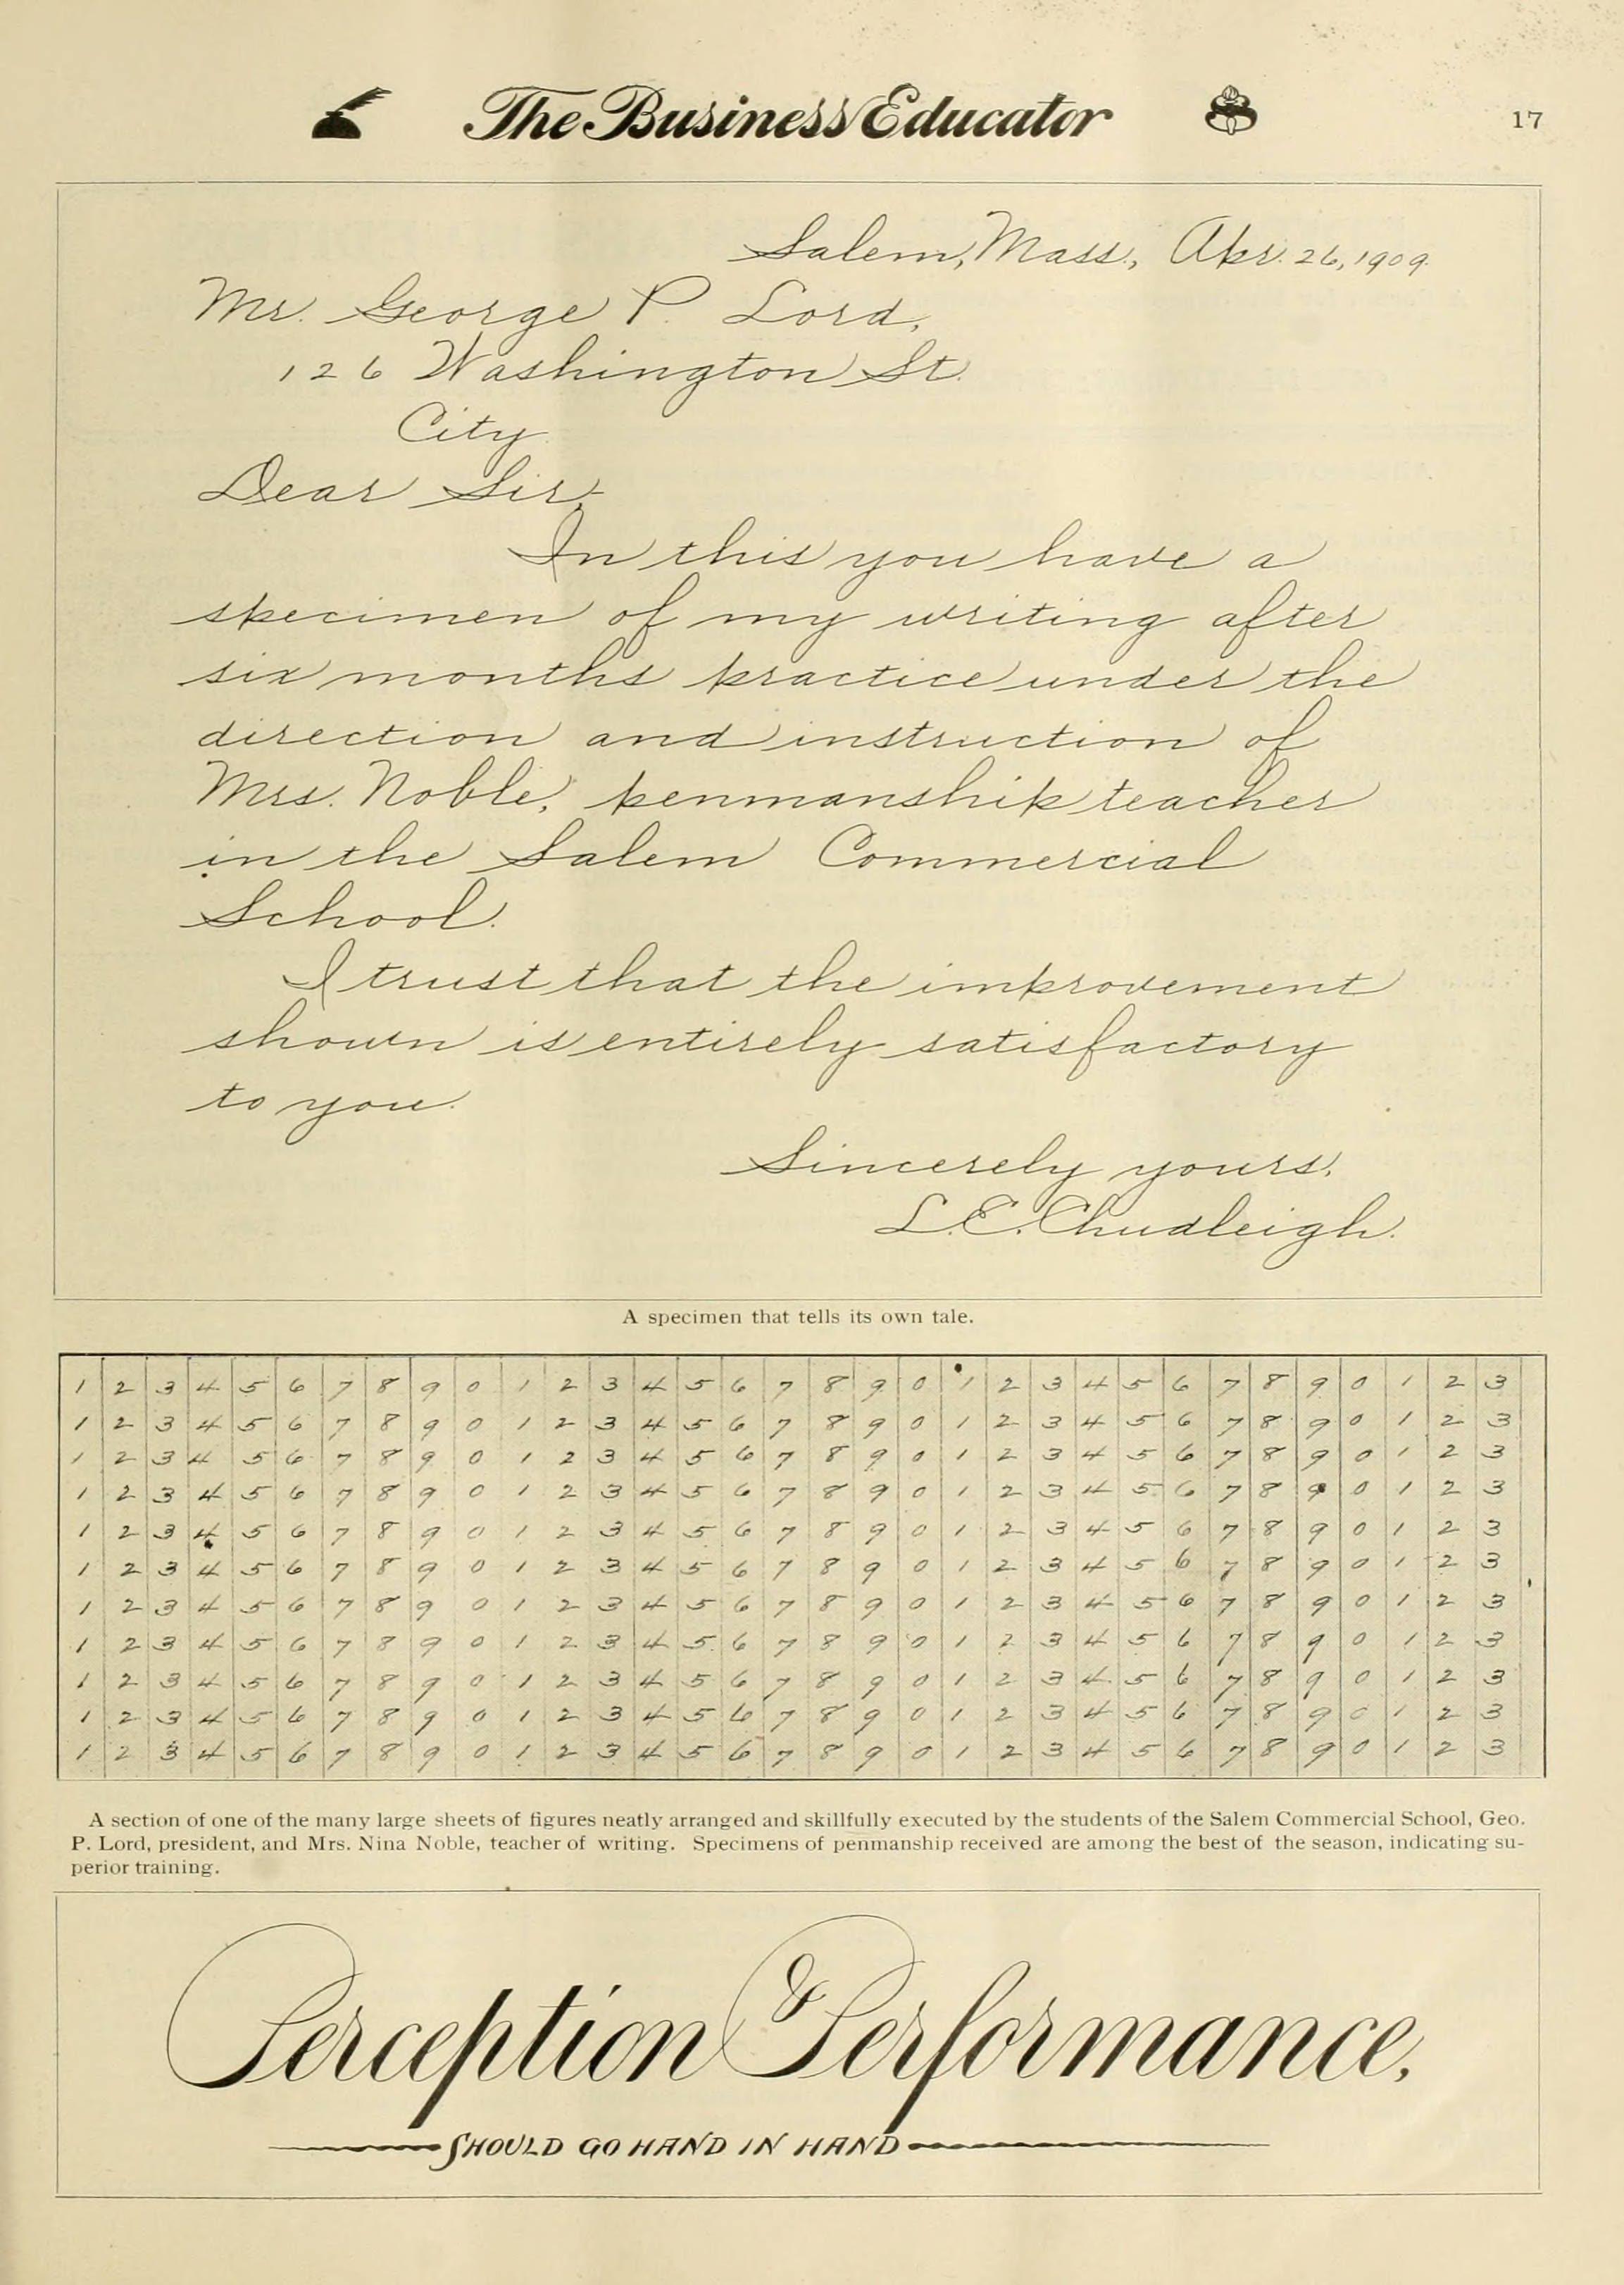 The Business Educator
17
Salem, Mass., Apr. 26, 1909.
Mr. George P. Lord,
126 Washington St.
City.
Dear Sir;-
In this you have a
specimen of my writing after
six months practice under the
direction and instruction of
Mrs. Noble, penmanship teacher
in the Salem Commercial
School.
I trust that the improvement
shown is entirely satisfactory
to you.
Sincerely yours,
L.E. Chudleigh.
A specimen that tells its own tale.
1 2 3 4 5 6 7 8 9 0 1 2 3 4 5 6 7 8 9 0 1 2 3 4 5 6 7 8 9 0 1 2 3
1 2 3 4 5 6 7 8 9 0 1 2 3 4 5 6 7 8 9 0 1 2 3 4 5 6 7 8 9 0 1 2 3
1 2 3 4 5 6 7 8 9 0 1 2 3 4 5 6 7 8 9 0 1 2 3 4 5 6 7 8 9 0 1 2 3
1 2 3 4 5 6 7 8 9 0 1 2 3 4 5 6 7 8 9 0 1 2 3 4 5 6 7 8 9 0 1 2 3
1 2 3 4 5 6 7 8 9 0 1 2 3 4 5 6 7 8 9 0 1 2 3 4 5 6 7 8 9 0 1 2 3
1 2 3 4 5 6 7 8 9 0 1 2 3 4 5 6 7 8 9 0 1 2 3 4 5 6 7 8 9 0 1 2 3
1 2 3 4 5 6 7 8 9 0 1 2 3 4 5 6 7 8 9 0 1 2 3 4 5 6 7 8 9 0 1 2 3
1 2 3 4 5 6 7 8 9 0 1 2 3 4 5 6 7 8 9 0 1 2 3 4 5 6 7 8 9 0 1 2 3
1 2 3 4 5 6 7 8 9 0 1 2 3 4 5 6 7 8 9 0 1 2 3 4 5 6 7 8 9 0 1 2 3
1 2 3 4 5 6 7 8 9 0 1 2 3 4 5 6 7 8 9 0 1 2 3 4 5 6 7 8 9 0 1 2 3
1 2 3 4 5 6 7 8 9 0 1 2 3 4 5 6 7 8 9 0 1 2 3 4 5 6 7 8 9 0 1 2 3
A section of one of the many large sheets of figures neatly arranged and skillfully executed by the students of the Salem Commercial School, Geo.
P. Lord, president, and Mrs. Nina Noble, teacher of writing. Specimens of penmanship received are among the best of the season, indicating su-
perior training.
Perception & Performance,
SHOULD GO HAND IN HAND